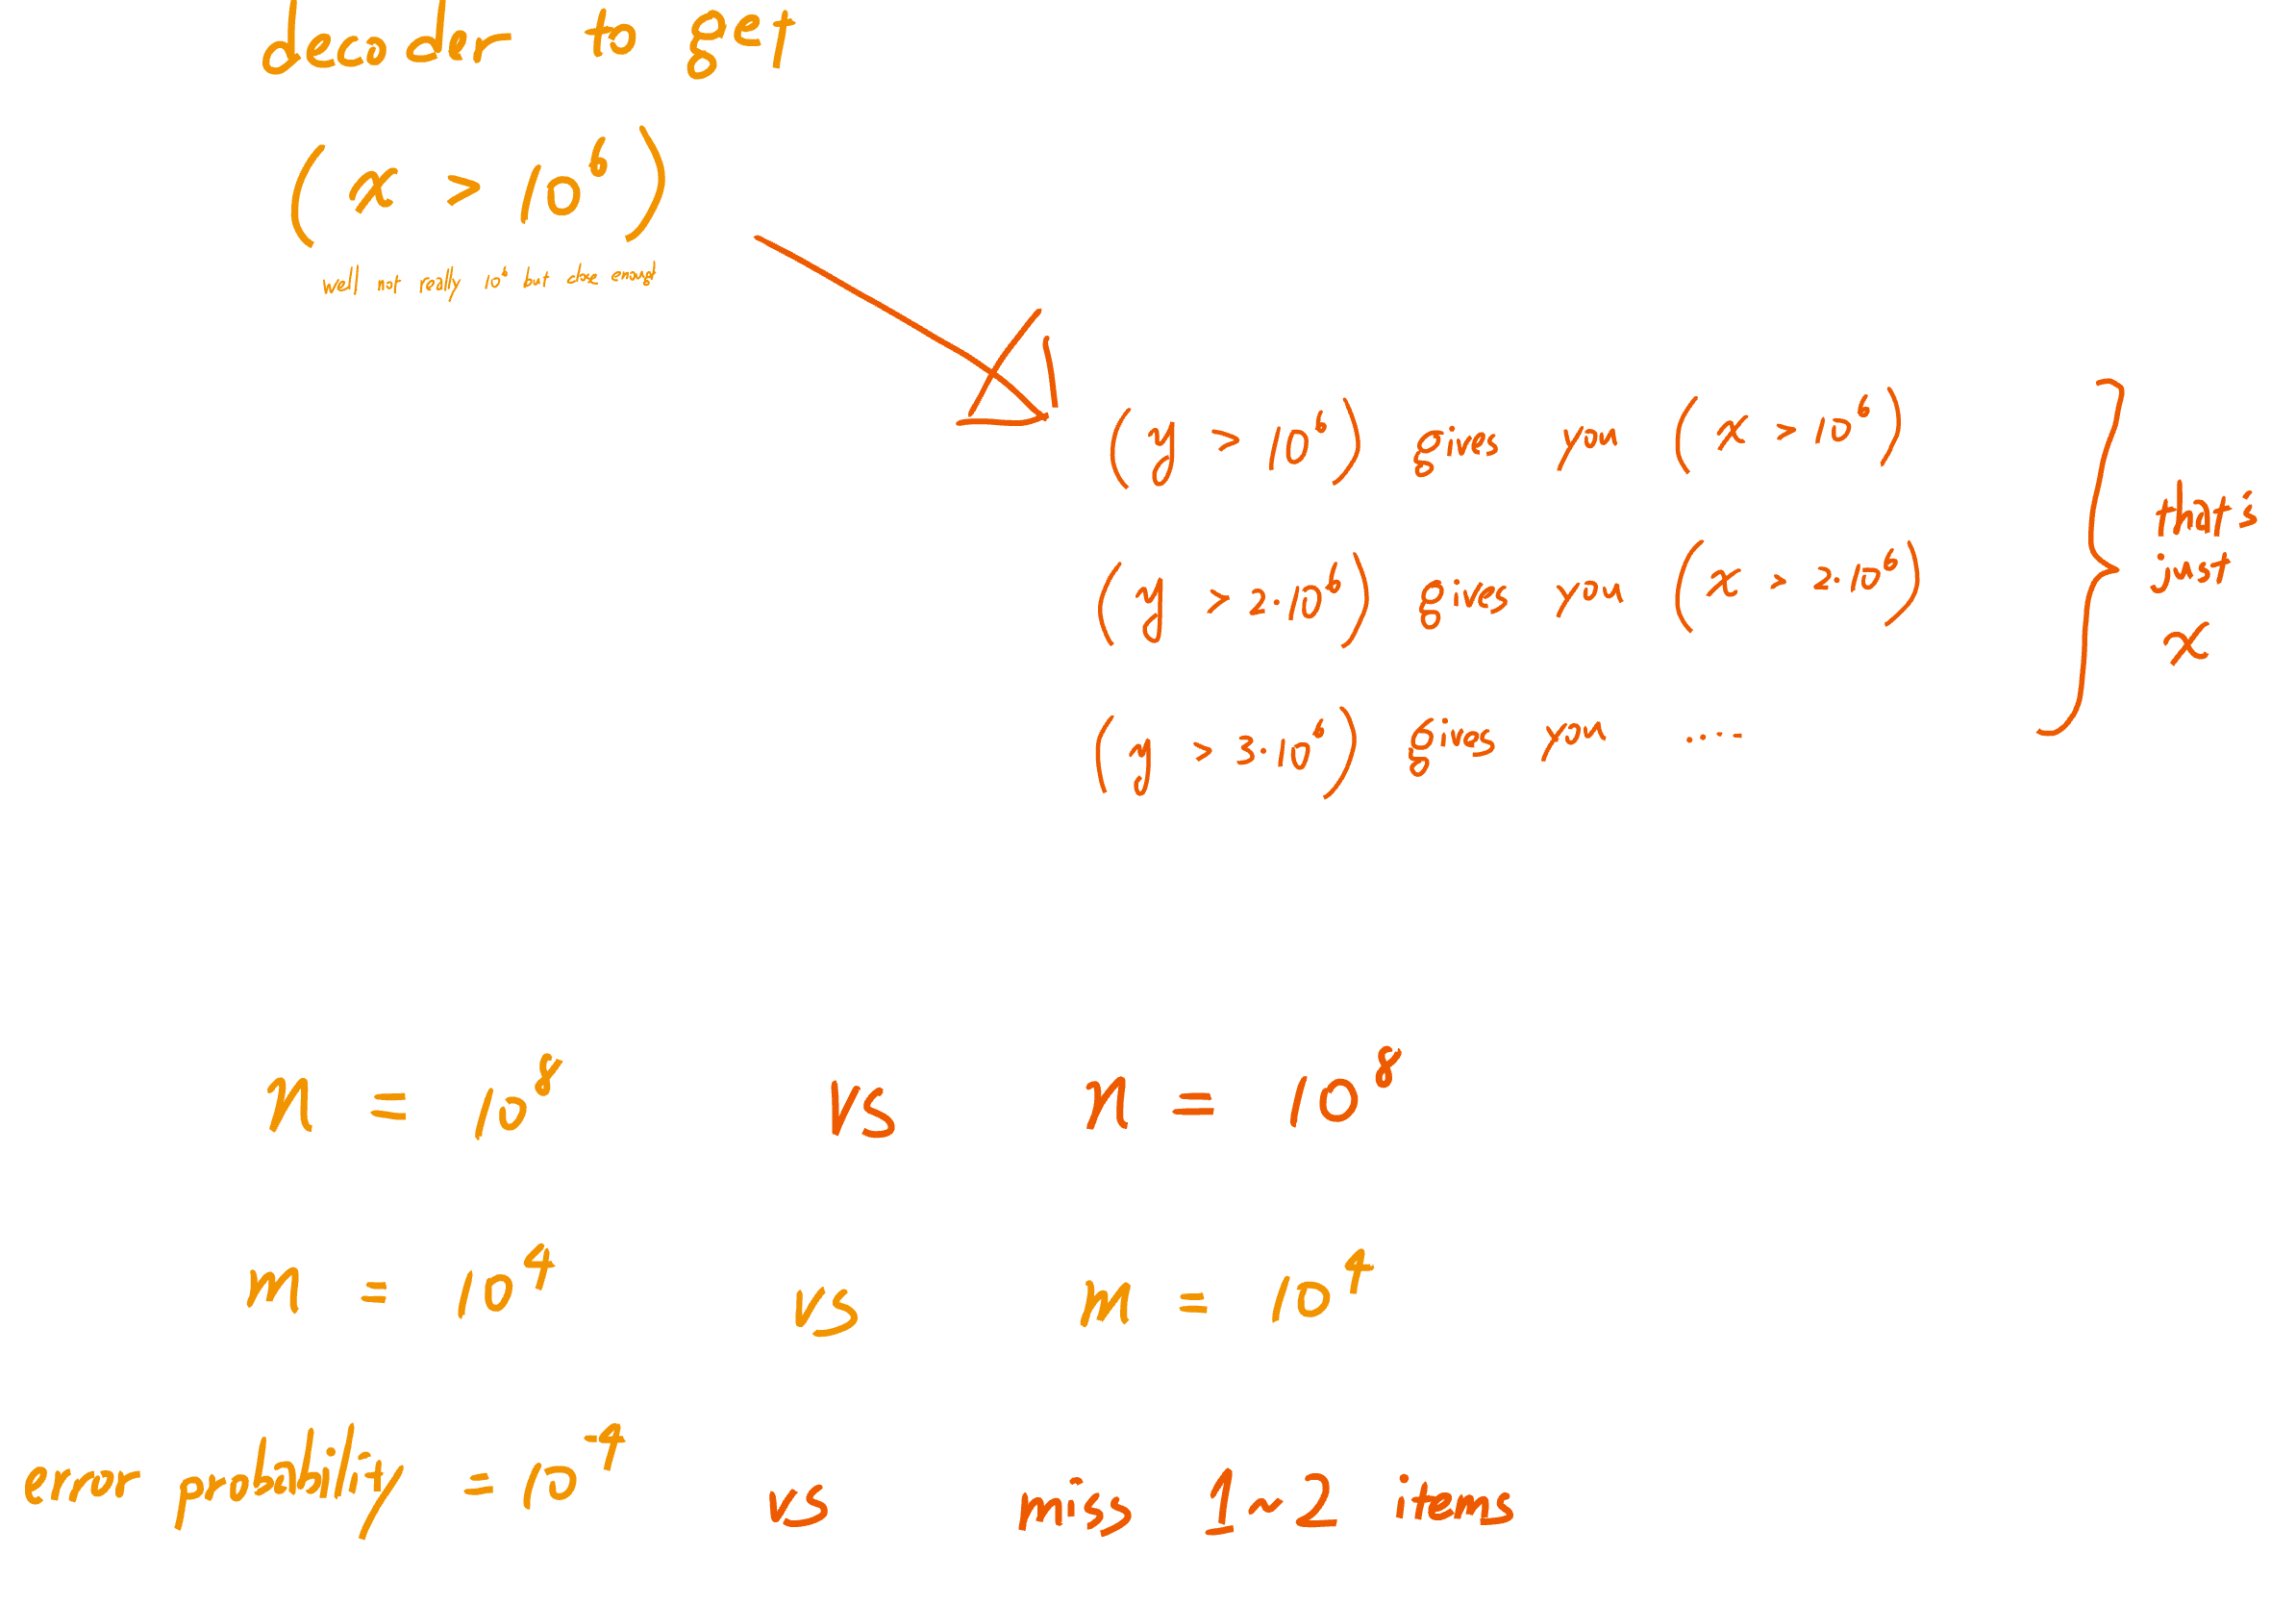 decoder to get
(x > 10^6)
well not really 10^6 but close enough
(y > 10^6) gives you (x > 10^6)
(y > 2·10^6) gives you (x > 2·10^6)
(y > 3·10^6) gives you ....
that's
just
x
n = 10^8 vs n = 10^8
m = 10^4 vs m = 10^4
error probability = 10^-4 vs miss 1~2 items